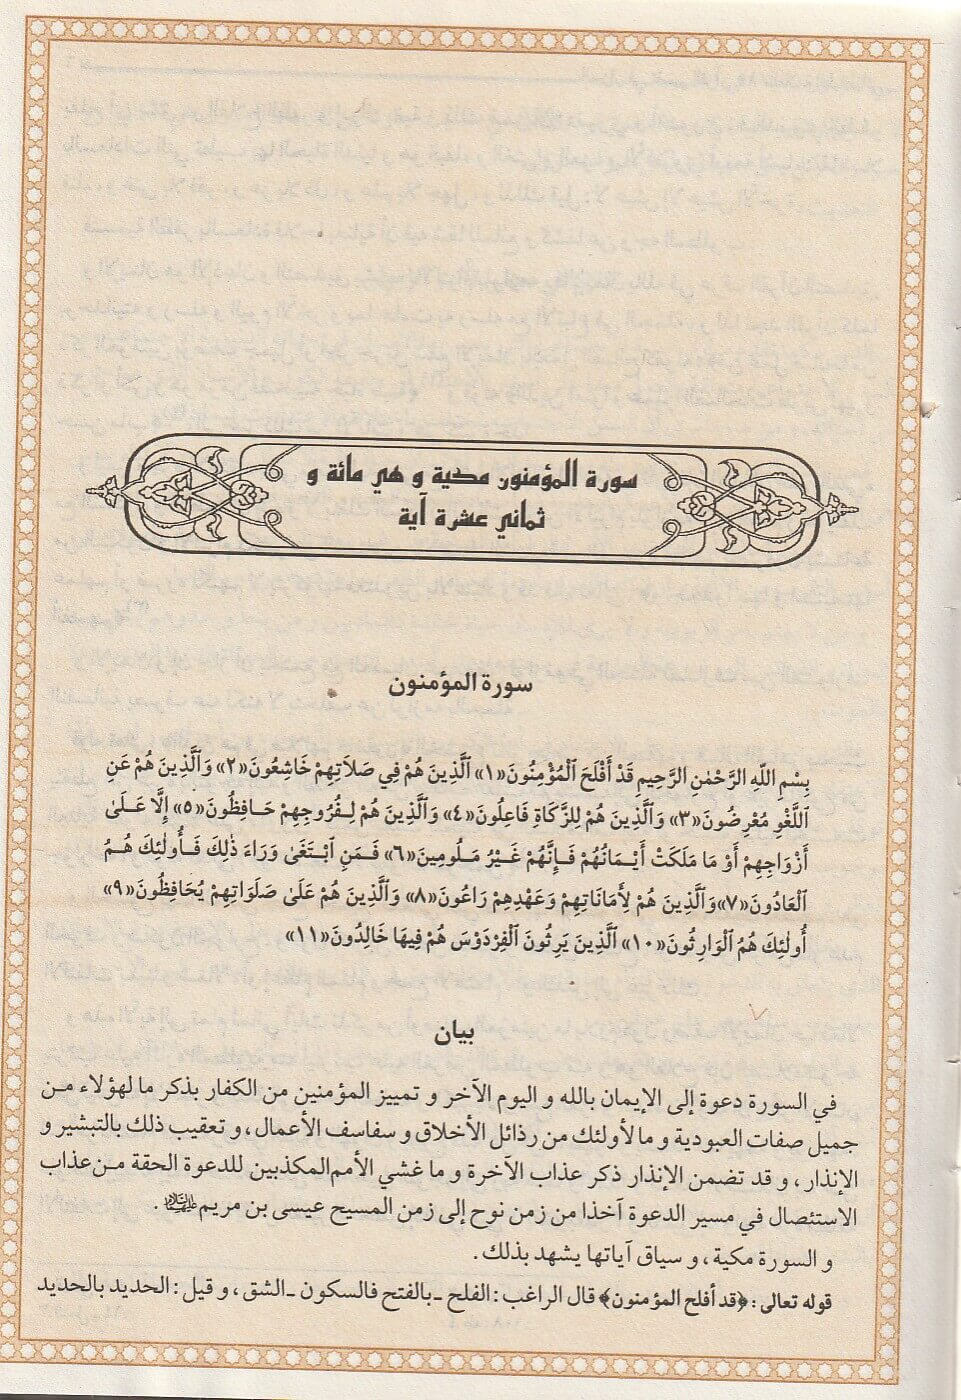 سورة المؤمنون مكية و هي مائة و
ثماني عشرة آية
سورة المؤمنون
بِسْمِ اللّهِ الرَّحْمٰنِ الرَّحِيمِ قَدْ أَفْلَحَ ٱلْمُؤْمِنُونَ«١» ٱلَّذِينَ هُمْ فِي صَلاَتِهِمْ خَاشِعُونَ«٢» وَٱلَّذِينَ هُمْ عَنِ
ٱللَّغْوِ مُعْرِضُونَ«٣» وَٱلَّذِينَ هُمْ لِلزَّكَاةِ فَاعِلُونَ«٤» وَٱلَّذِينَ هُمْ لِفُرُوجِهِمْ حَافِظُونَ«٥» إِلَّا عَلَىٰ
أَزْوَاجِهِمْ أَوْ مَا مَلَكَتْ أَيْمَانُهُمْ فَإِنَّهُمْ غَيْرُ مَلُومِينَ«٦» فَمَنِ ٱبْتَغَىٰ وَرَاءَ ذٰلِكَ فَأُولٰئِكَ هُمُ
ٱلْعَادُونَ«٧»وَٱلَّذِينَ هُمْ لِأَمَانَاتِهِمْ وَعَهْدِهِمْ رَاعُونَ«٨» وَٱلَّذِينَ هُمْ عَلَىٰ صَلَوَاتِهِمْ يُحَافِظُونَ«٩»
أُولٰئِكَ هُمُ ٱلْوَارِثُونَ«١٠» ٱلَّذِينَ يَرِثُونَ ٱلْفِرْدَوْسَ هُمْ فِيهَا خَالِدُونَ«١١»
بيان
في السورة دعوة إلى الإيمان بالله و اليوم الآخر و تمييز المؤمنين من الكفار بذكر ما لهؤلاء من
جميل صفات العبودية و ما لأولئك من رذائل الأخلاق و سفاسف الأعمال، و تعقيب ذلك بالتبشير و
الإنذار، و قد تضمن الإنذار ذكر عذاب الآخرة و ما غشي الأمم المكذبين للدعوة الحقة من عذاب
الاستئصال في مسير الدعوة آخذا من زمن نوح إلى زمن المسيح عيسى بن مريم .
و السورة مكية، و سياق آياتها يشهد بذلك.
قوله تعالى: ﴿قد أفلح المؤمنون﴾ قال الراغب: الفلح ـ بالفتح فالسكون ـ الشق، و قيل: الحديد بالحديد